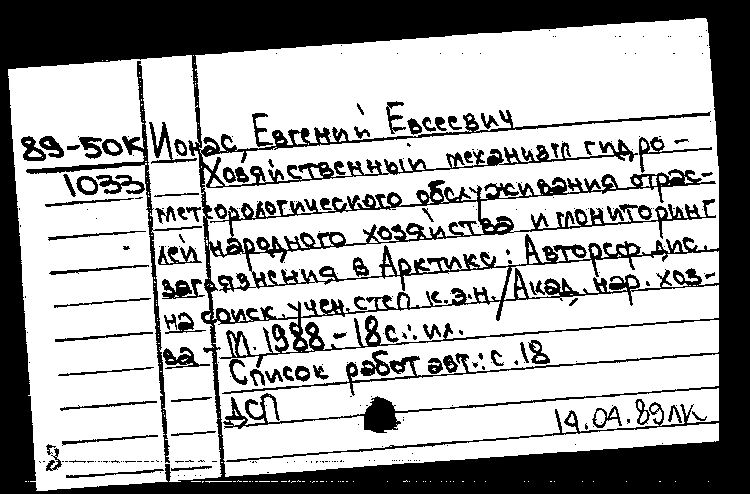 89-50К Ионас, Евгений Евсеевич
1033 Хозяйственный механизм гидро-
метеорологического обслуживания отрас-
лей народного хозяйства и мониторинг
загрязнения в Арктике: Автореф. дис.
на соиск. учен. степ. к.э.н. / Акад. нар. хоз-
ва - М. 1988. - 18 с.: ил.
Список работ авт.: с. 18
ДСП
14.04.89 ЛК
8